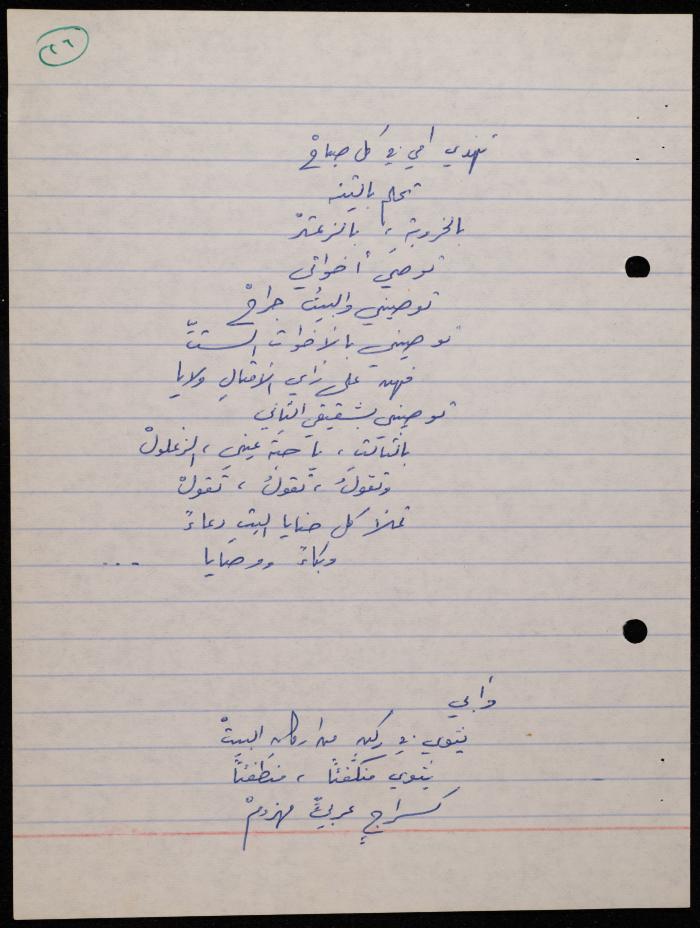 ٢٦
تهذي أمي في كل صباحْ
تحلم بالتينه
بالخروبة، بالزعترْ
توصي أخواتي
توصيني والبيتُ جراحْ
توصيني بالاخوات الستّ
فهنّ على رأي الأمثالِ ولايا
توصيني بشقيقي الثاني
بالثالث، يا حبّة عيني، الزغلولْ
وتقولُ، تقولُ، تقولْ
تملأ كل حنايا البيتِ دعاءً
وبكاءً ووصايا ...
وأبي
ينزوي في ركنٍ من اركان البيتْ
ينزوي منكفئًا، منطفئًا
كسراجٍ عربيٍّ مهزومْ